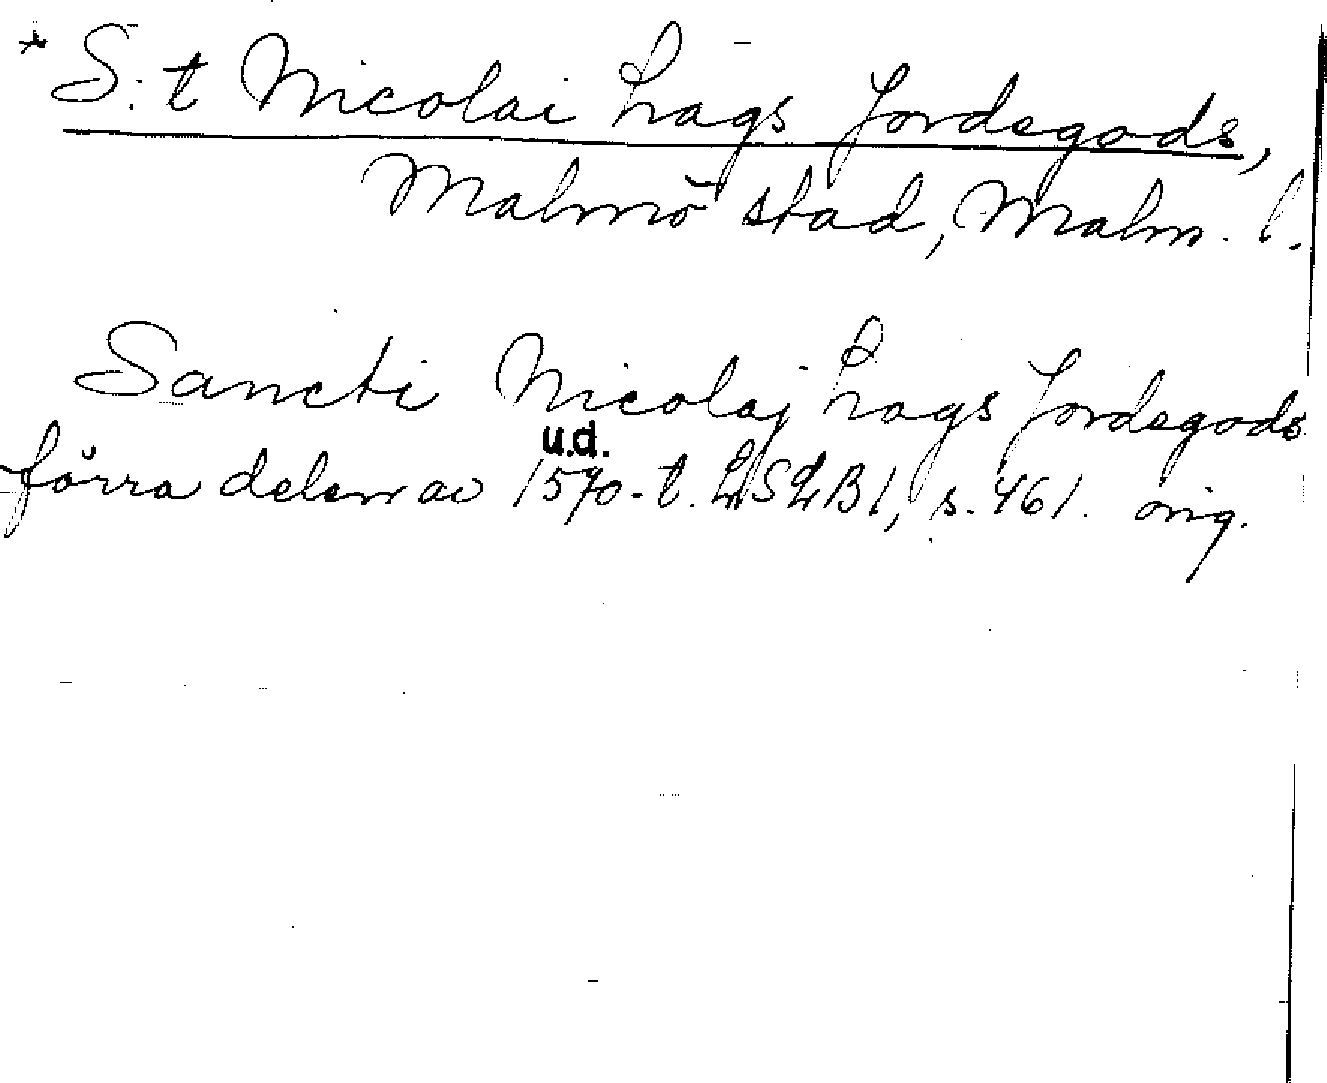 * S:t Nicolai Lags Jordegods,
Malmö stad, Malm. l.
Sancti Nicolaj Lags Jordegods
u.d.
förra delen av 1570-t. LSLB1, s. 461. orig.